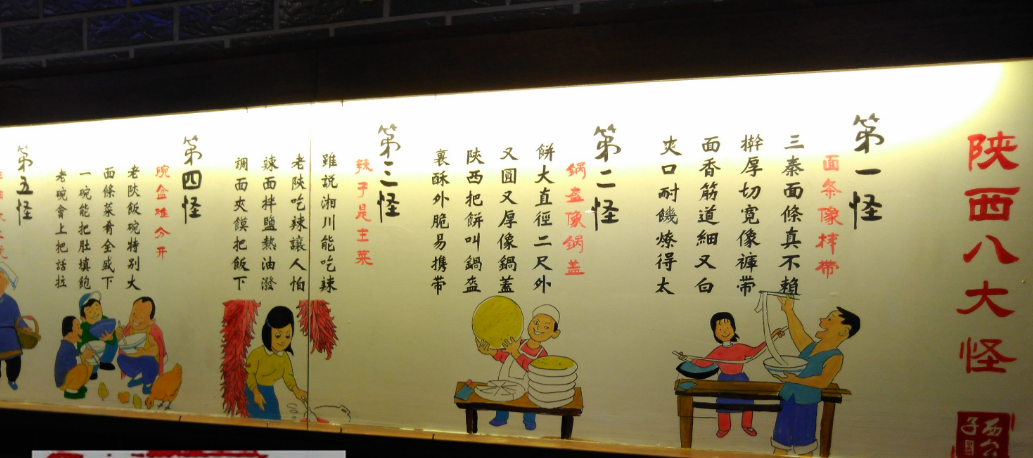 陝西八大怪
第一怪
面条像褲帶
三秦面條真不賴
擀厚切寬像褲帶
面香筋道細又白
爽口耐饑燎得太
第二怪
鍋盔像鍋蓋
餅大直徑二尺外
又圓又厚像鍋蓋
陝西把餅叫鍋盔
裏酥外脆易携帶
第三怪
辣子是主菜
雖說湘川能吃辣
老陝吃辣讓人怕
辣面拌鹽熱油潑
調面夾饃把飯下
第四怪
碗盆难分开
老陝飯碗特别大
面條菜肴全盛下
一碗能把肚填飽
老碗會上把話拉
第五怪